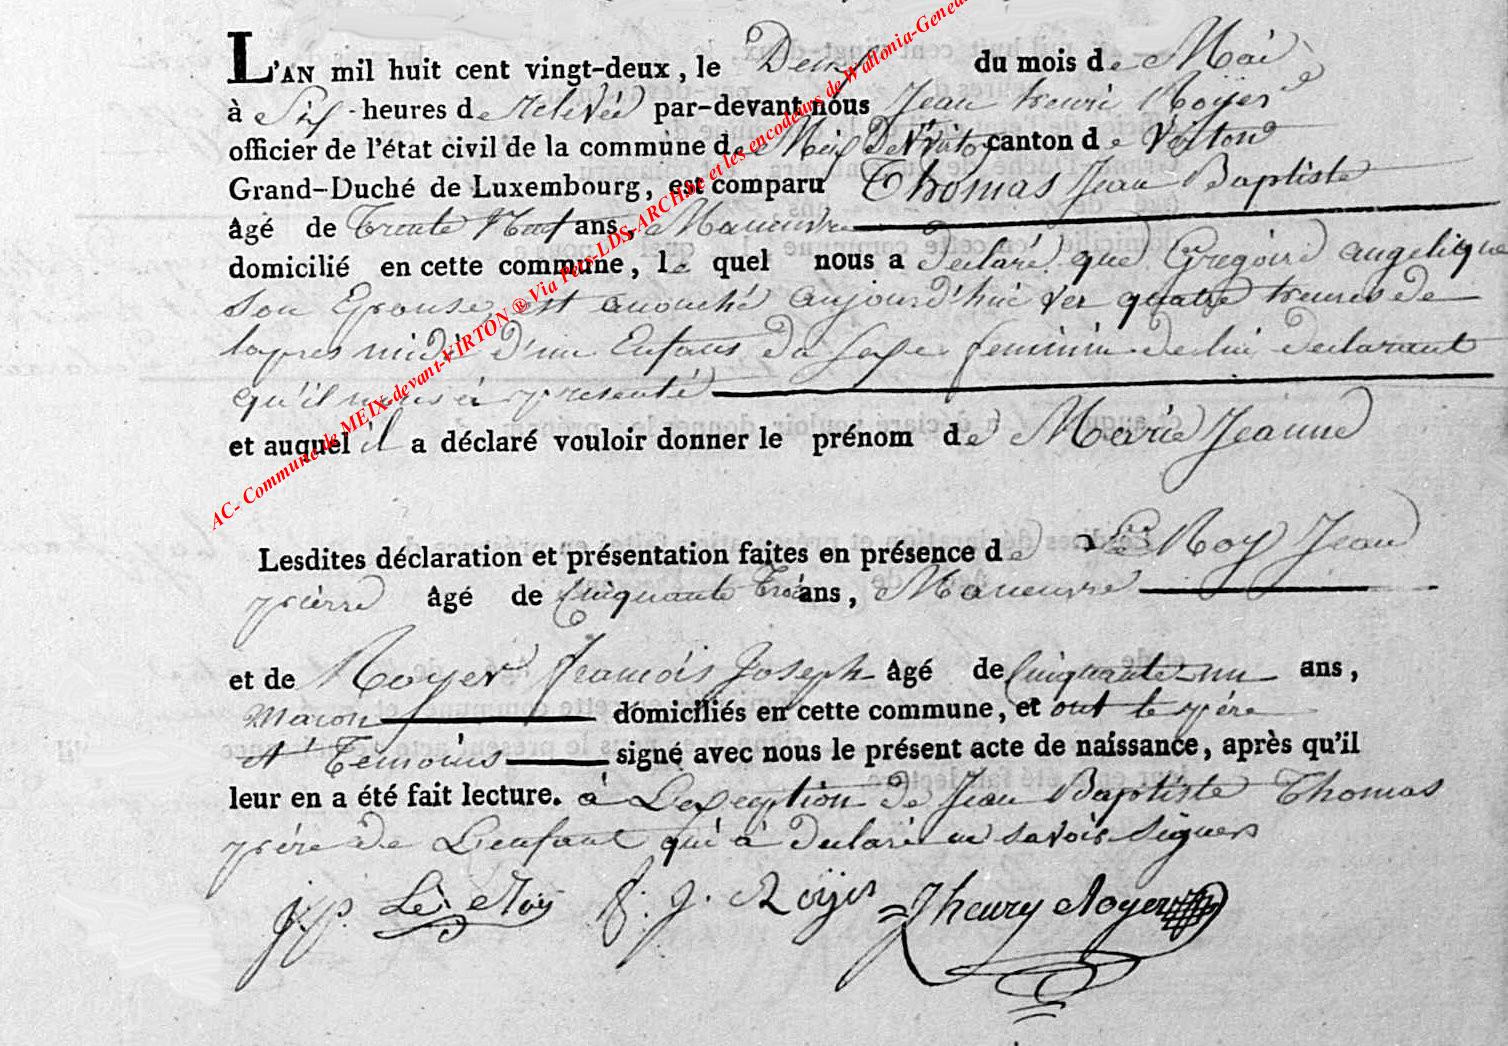 L'AN mil huit cent vingt-deux, le Deux du mois de Mai
à Six heures de relevée par-devant nous Jean henri Royer
officier de l'état civil de la commune de Meix Devt Virton canton de Virton
Grand-Duché de Luxembourg, est comparu Thomas Jean Baptiste
âgé de Trente Neuf ans, Maneuvre
domicilié en cette commune, le quel nous a declaré que Gregoire angelique
Son Epouse, est acouché aujourd'hui ver quatre heures de
lapres midi d'un Enfans du sexe feminin de lui declarant
qu'il nous à presenté
et auquel il a déclaré vouloir donner le prénom de Marie Jeanne
Lesdites déclaration et présentation faites en présence de Le Roy Jean
pierre âgé de Cinquante Trois ans, Maneuvre
et de Royer francois Joseph âgé de Cinquante un ans,
Macon domiciliés en cette commune, et ont le père
et Temoins signé avec nous le présent acte de naissance, après qu'il
leur en a été fait lecture. à L'exception de Jean Baptiste Thomas
père de L'enfant qui à declaré ne savoir Signer
j. p. Le Roy f. j. Royer J henry Royer
AC- Commune de MEIX-devant-VIRTON ® Via Pers-LDS-ARCHive et les encodeurs de Wallonia-Genea